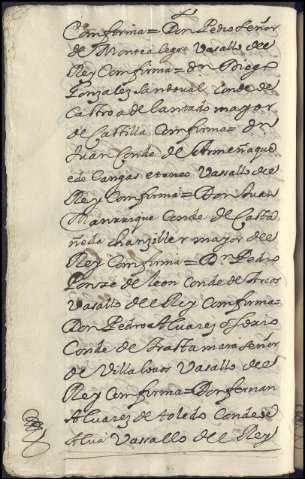 Confirma = Don Pedro Señor
de Montealegre Vasallo del
Rey Confirma = dn Diego
Gonzalez Sandoval Conde de
Castro adelantado mayor
de Castilla Confirma = dn
Juan Conde de Armeñaque
e de Cangas e tineo Vasallo del
Rey Confirma = Don Juan
Manrrique Conde de Casta
ñeda chanziller mayor del
Rey Confirma = Dn Pedro
Ponze de leon Conde de Arcos
Vasallo del Rey Confirma =
Don Pedro Alvarez osorio
Conde de trastamara Señor
de Villalobos Vasallo del
Rey Confirma = Don fernan
Alvarez de toledo Conde de
Alva Vassallo del Rey